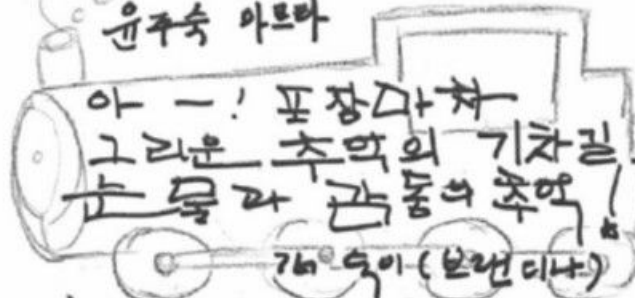 윤주숙 아프라
아 -! 포장마차
그리운 추억의 기차길
눈물과 감동의 추억
숙이 (브랜디나)